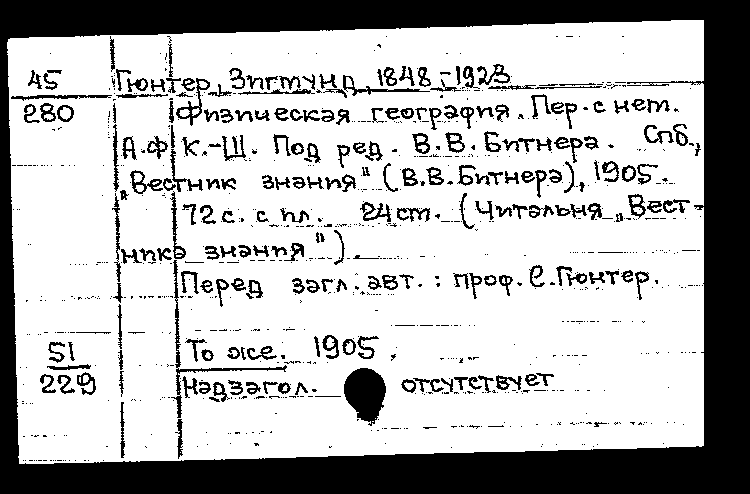 45 Гюнтер, Зигмунд, 1848-1923
280 Физическая география. Пер. с нем.
А.Ф К.-Ш. Под ред. В.В. Битнера. Спб.,
„Вестник знания" (В.В.Битнера), 1905.
72с. с ил. 24ст. (Читальня „Вест-
ника знания").
Перед загл. авт. : проф. С.Гюнтер.
51 То же. 1905,
229 Надзагол. отсутствует